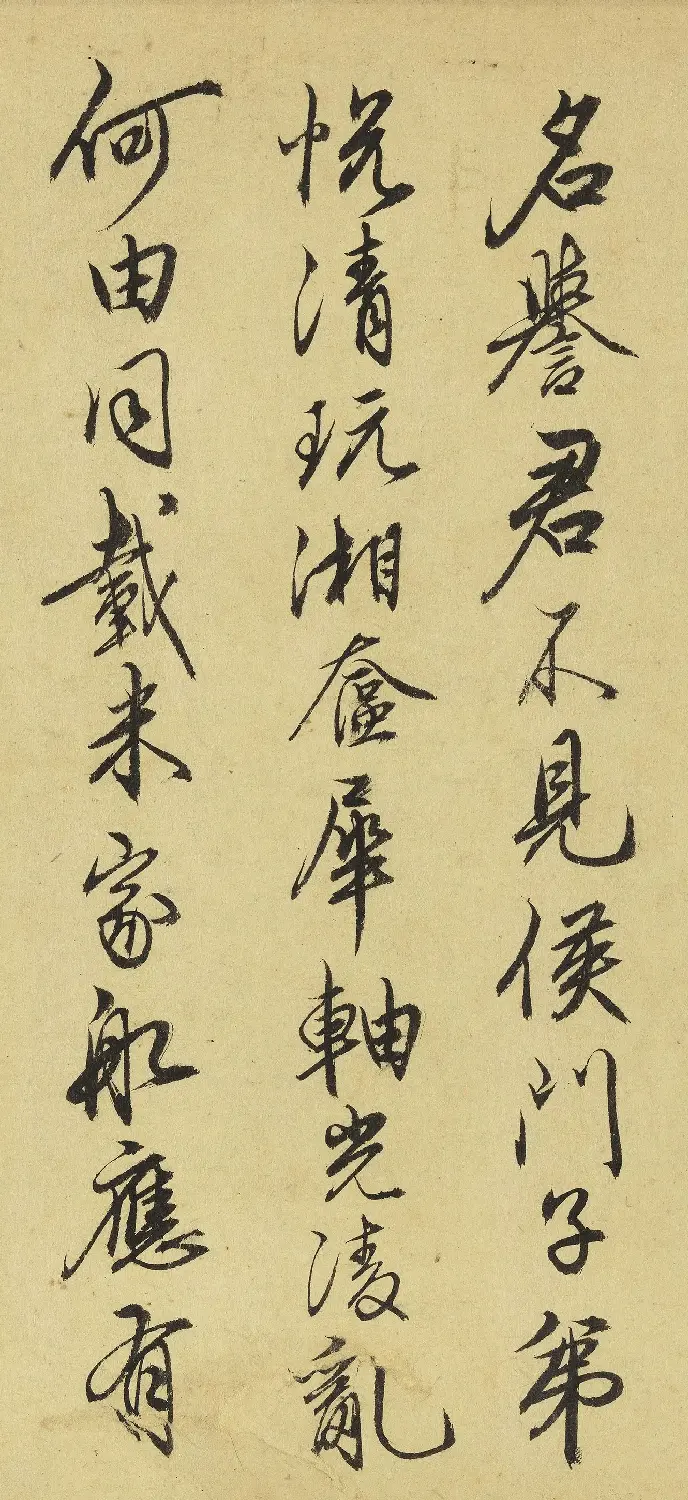 名譽君不見侯門子弟
悅清玩湘奩犀軸光凌亂
何由同載米家船應有